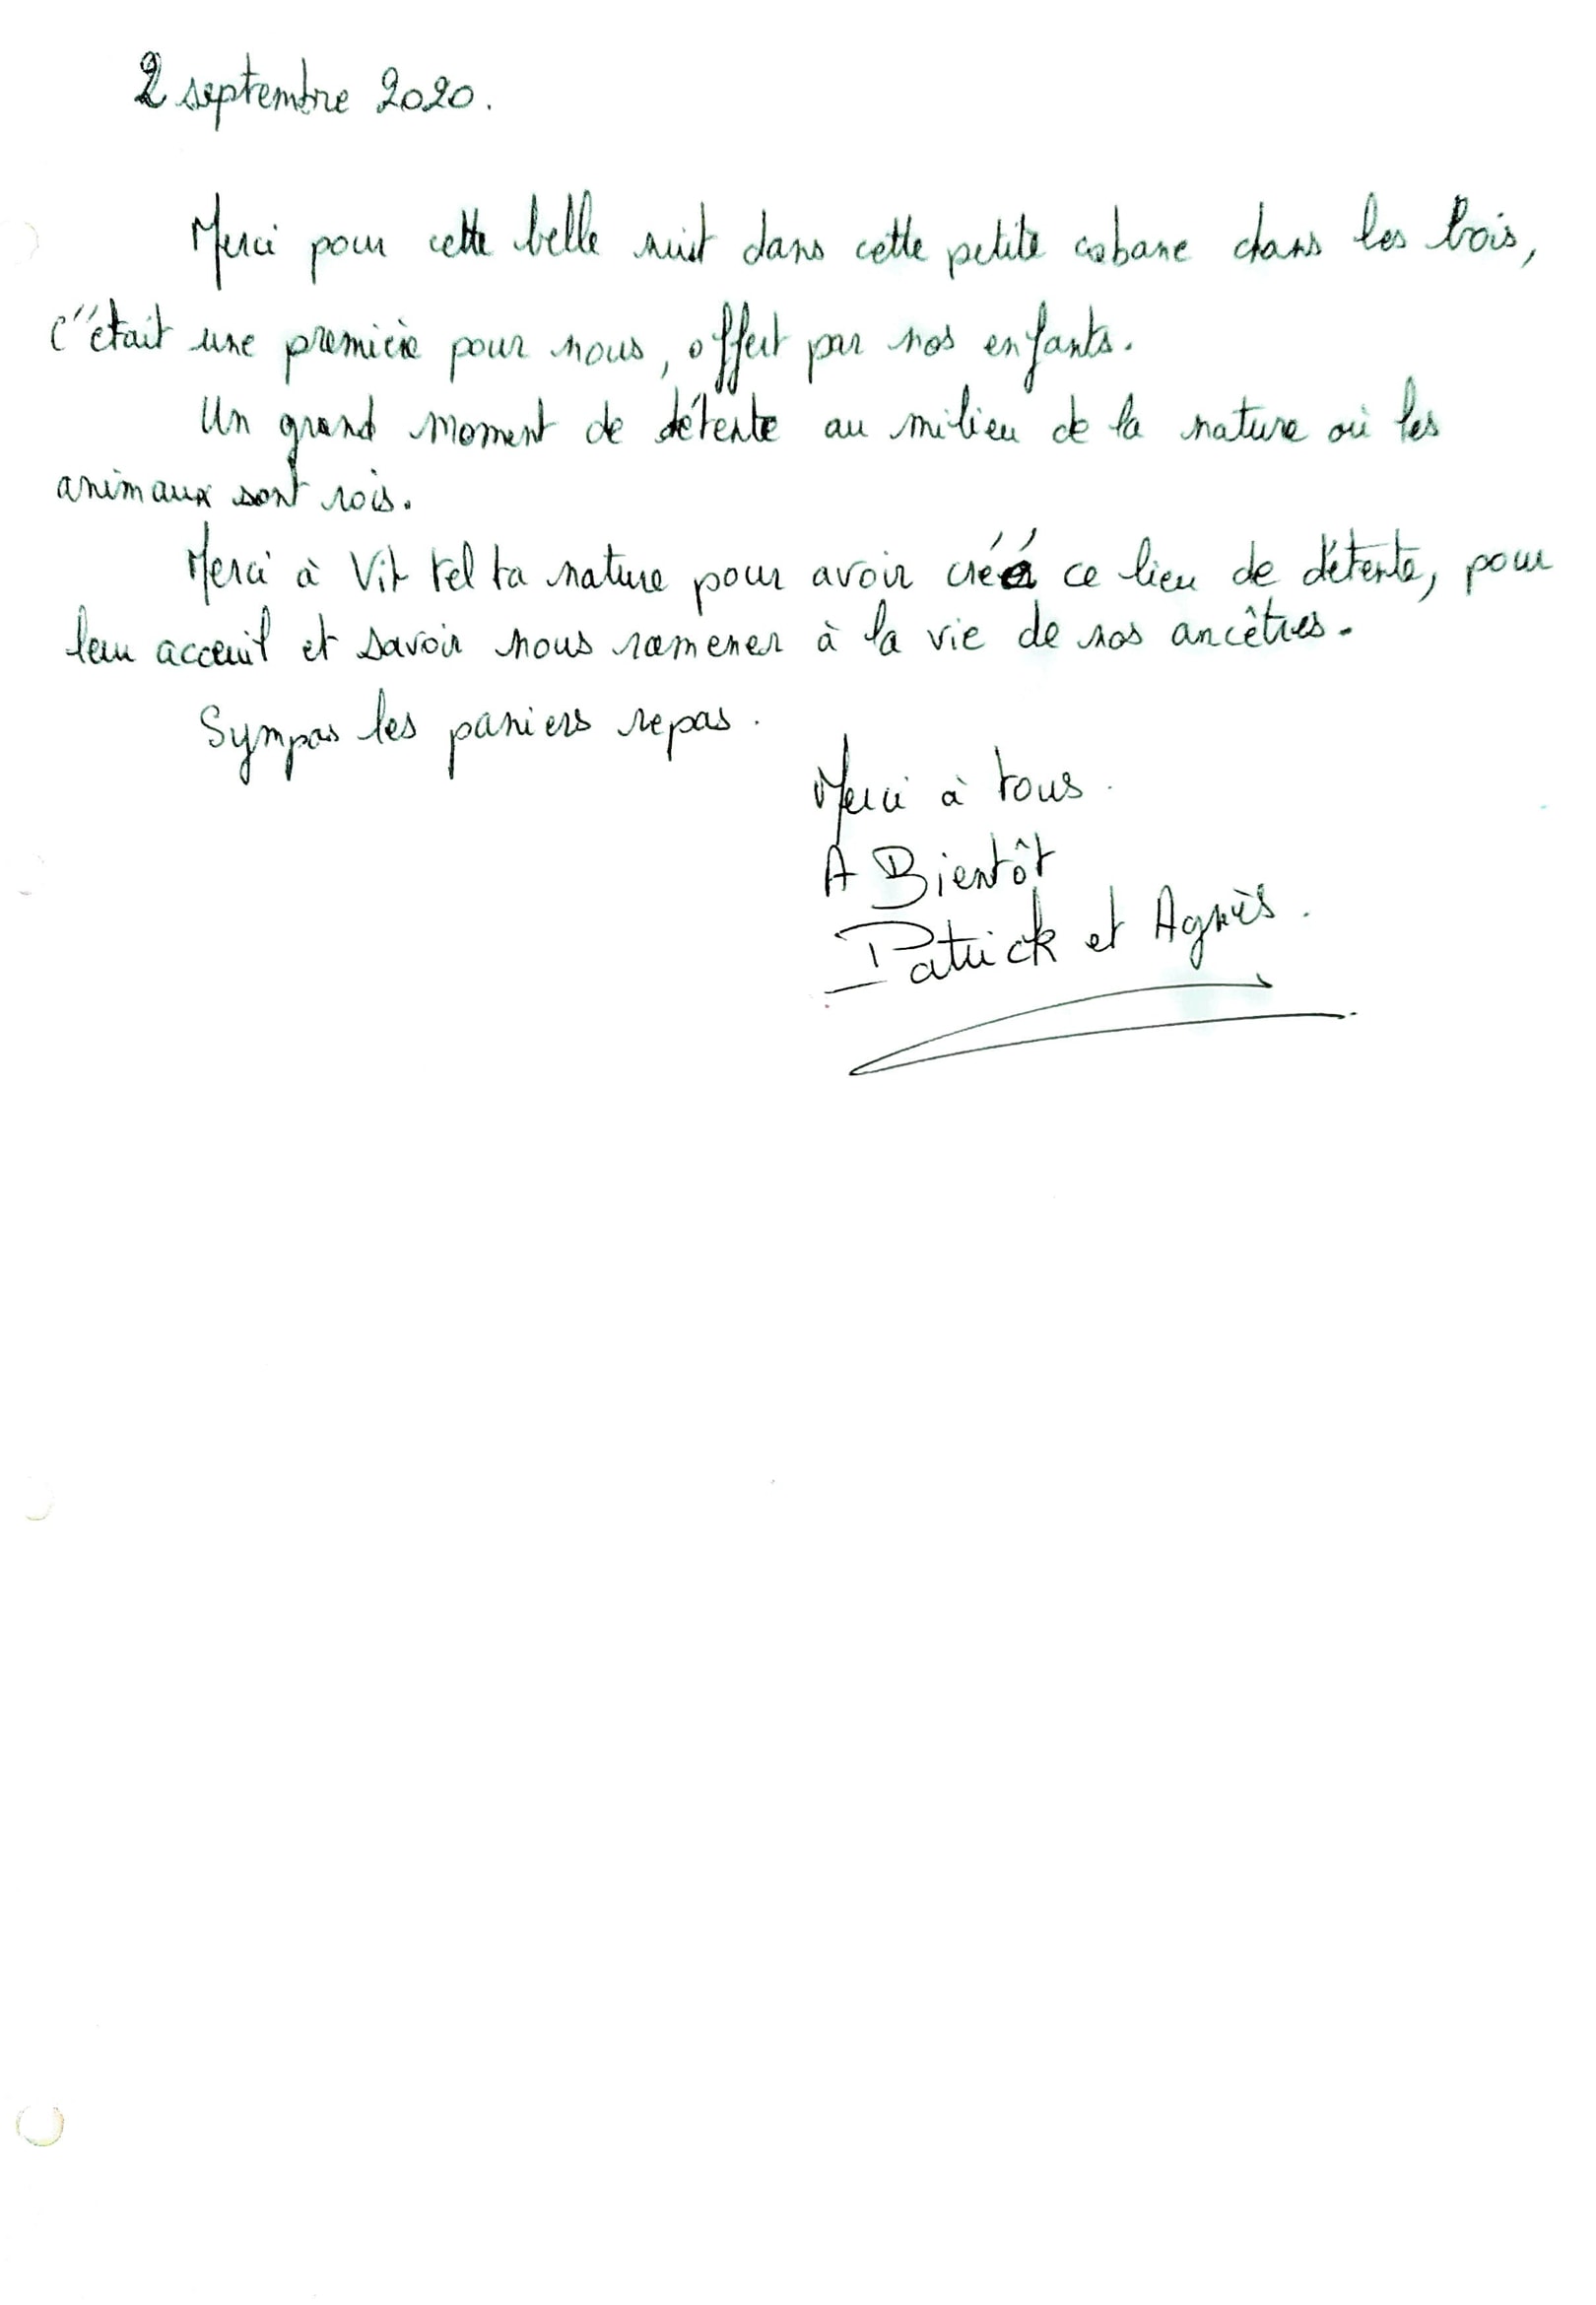 2 septembre 2020.
Merci pour cette belle nuit dans cette petite cabane dans les bois,
c'était une première pour nous, offert par nos enfants.
Un grand moment de détente au milieu de la nature où les
animaux sont rois.
Merci à Vit tel ta nature pour avoir créé ce lieu de détente, pour
leur acceuil et savoir nous ramener à la vie de nos ancêtres.
Sympas les paniers repas.
Merci à tous.
A Bientôt
Patrick et Agnès.